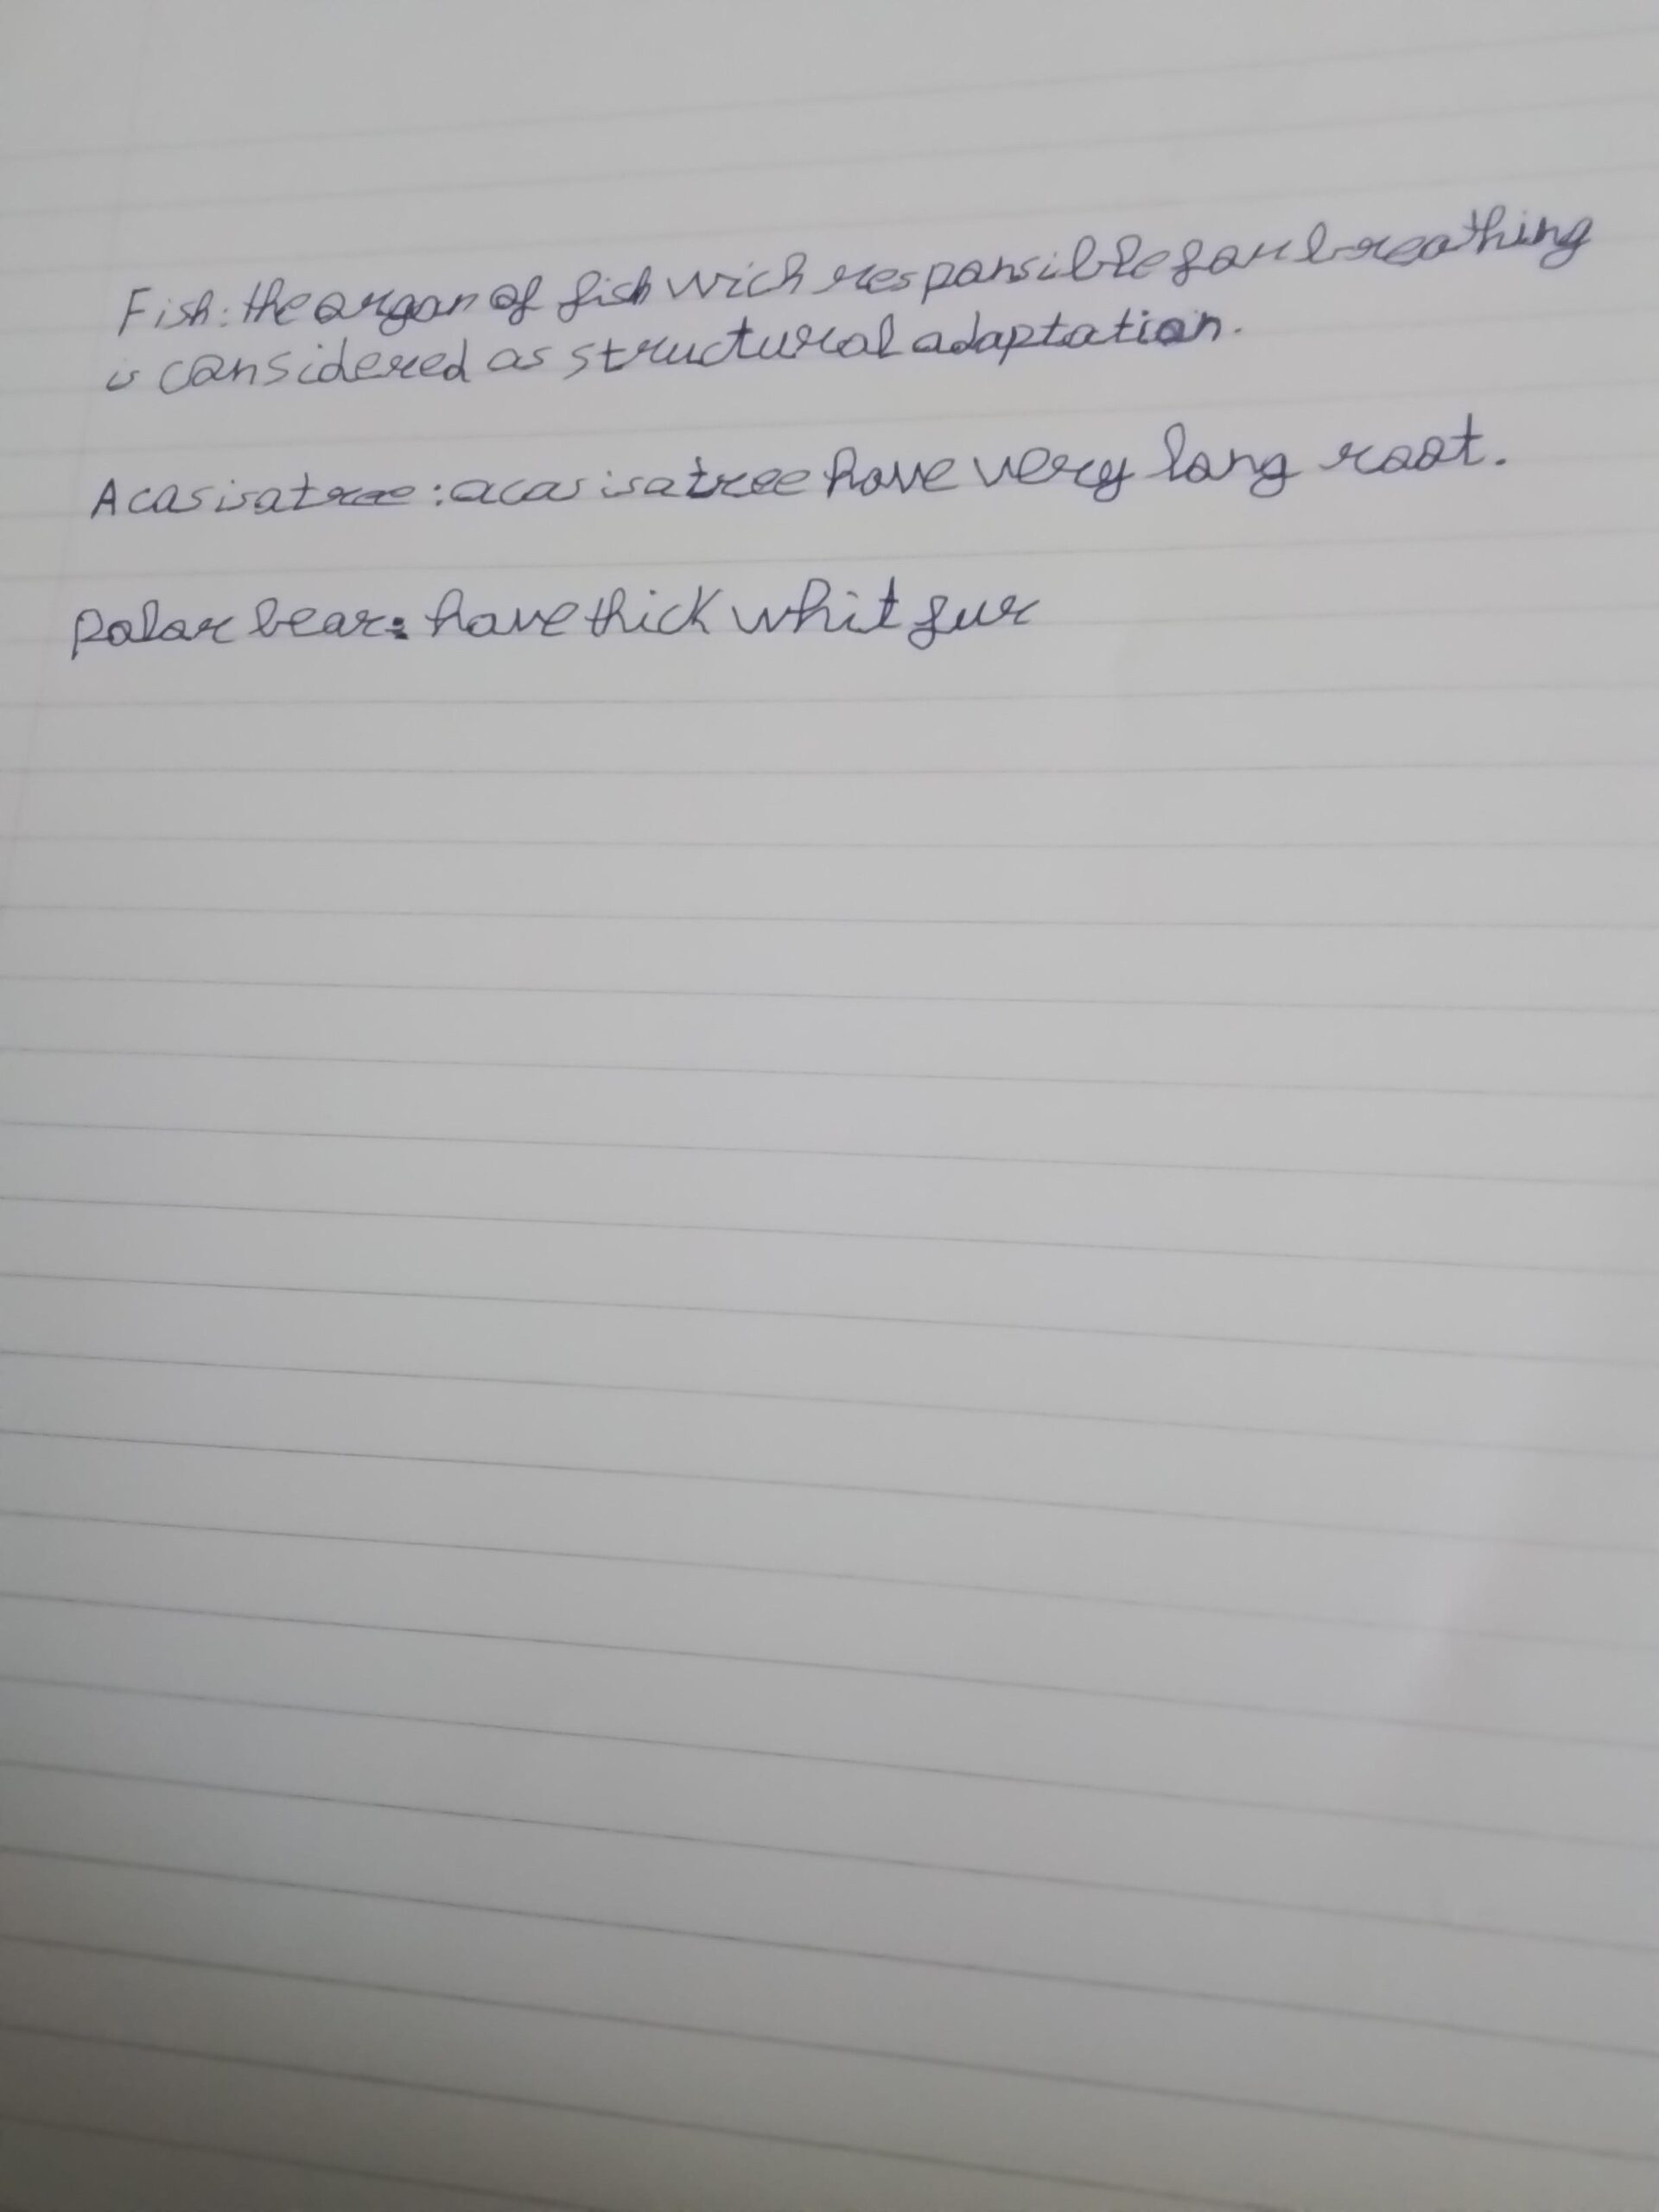 Fish: the organ of fish wich responsible for breathing
is considered as structural adaptation.
Acasisatree: acasisatree have very long root.
polar bear: have thick whit fur